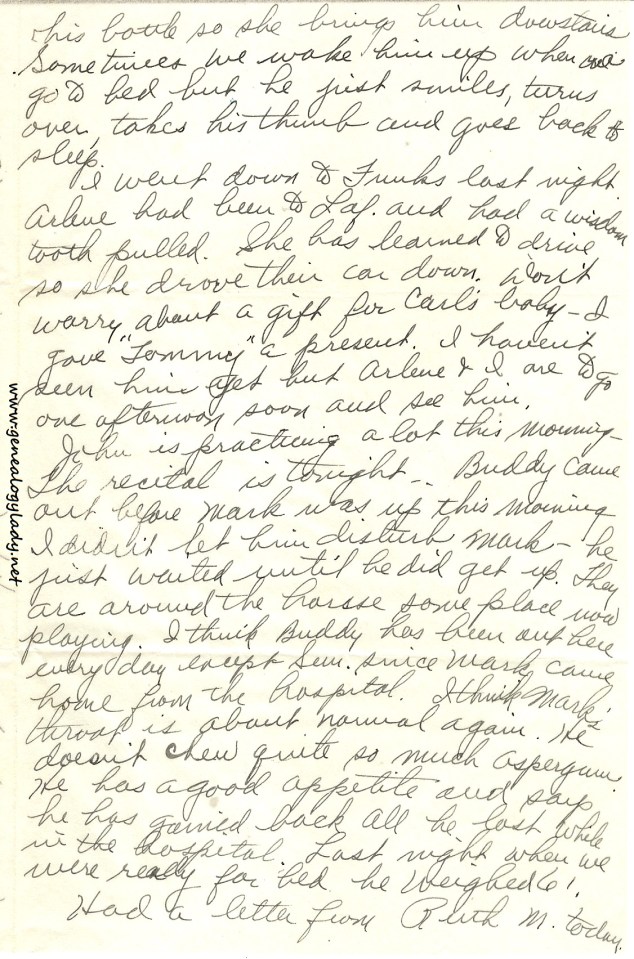 his bottle so she brings him downstairs
Sometimes we wake him up when we
go to bed but he just smiles, turns
over, takes his thumb and goes back to
sleep.
I went down to Funks last night.
Arlene had been to Laf. and had a wisdom
tooth pulled. She has learned to drive
so she drove their car down. Don't
worry about a gift for Carl's baby - I
gave "Tommy" a present. I haven't
seen him yet but Arlene & I are to go
one afternoon soon and see him.
John is practicing a lot this morning -
The recital is tonight -. Buddy came
out before Mark was up this morning
I didn't let him disturb Mark - he
just waited until he did get up. They
are around the house some place now
playing. I think Buddy has been out here
every day except Sun. since Mark came
home from the hospital. I think Mark's
throat is about normal again. He
doesn't chew quite so much aspergum.
He has a good appetite and says
he has gained back all he lost while
in the hospital. Last night when we
were ready for bed he weighed 61.
Had a letter from Ruth M. today.
www.genealogylady.net